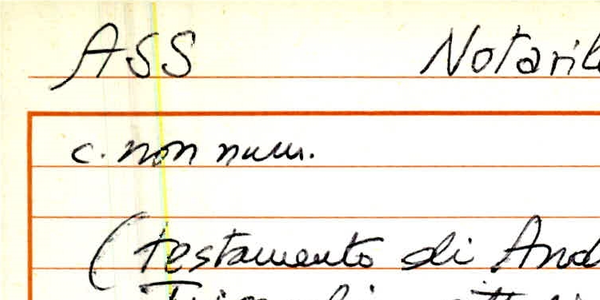 ASS Notaril
c. non num.
(testamento di And